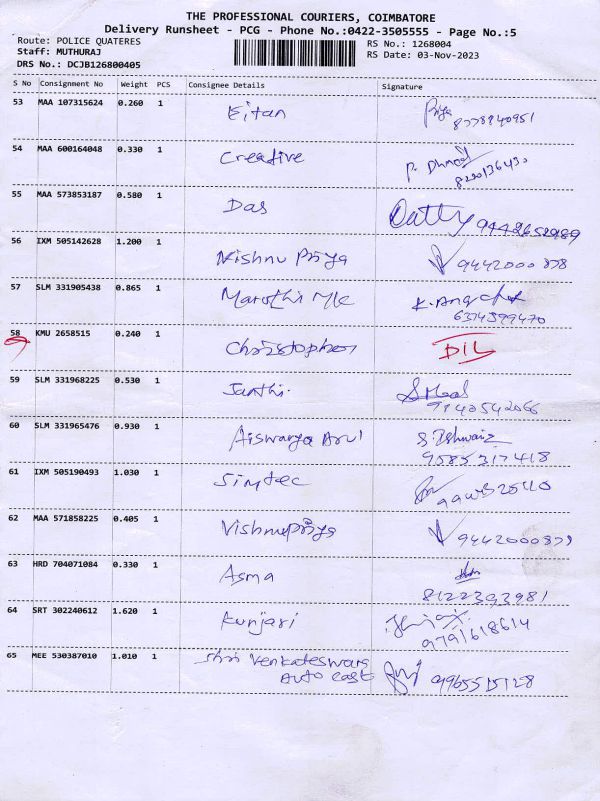 THE PROFESSIONAL COURIERS, COIMBATORE
Delivery Runsheet - PCG - Phone No.:0422-3505555 - Page No.:5
Route: POLICE QUATERES
RS No.: 1268004
Staff: MUTHURAJ
RS Date: 03-Nov-2023
DRS No.: DCJB126800405
S No Consignment No Weight PCS Consignee Details Signature
53 MAA 107315624 0.260 1 Eitan Priya
8778940951
54 MAA 600164048 0.330 1 Creative
8220136430
55 MAA 573853187 0.580 1 Das 9442652989
56 IXM 505142628 1.200 1 Vishnu Priya 9442000878
57 SLM 331905438 0.865 1 Maruthi Mle
6374599470
58 KMU 2658515 0.240 1 Christopher DIL
59 SLM 331968225 0.530 1 Janthi.
9140542066
60 SLM 331965476 0.930 1 Aiswarya Arul
9585317418
61 IXM 505190493 1.030 1 Simtec
62 MAA 571858225 0.405 1 Vishnupriya 9442000879
63 HRD 704071084 0.330 1 Asma
8122393981
64 SRT 302240612 1.620 1 Kunjari
9791618614
65 MEE 530387010 1.010 1 Shri Venkateswara
Auto cast 9965515128